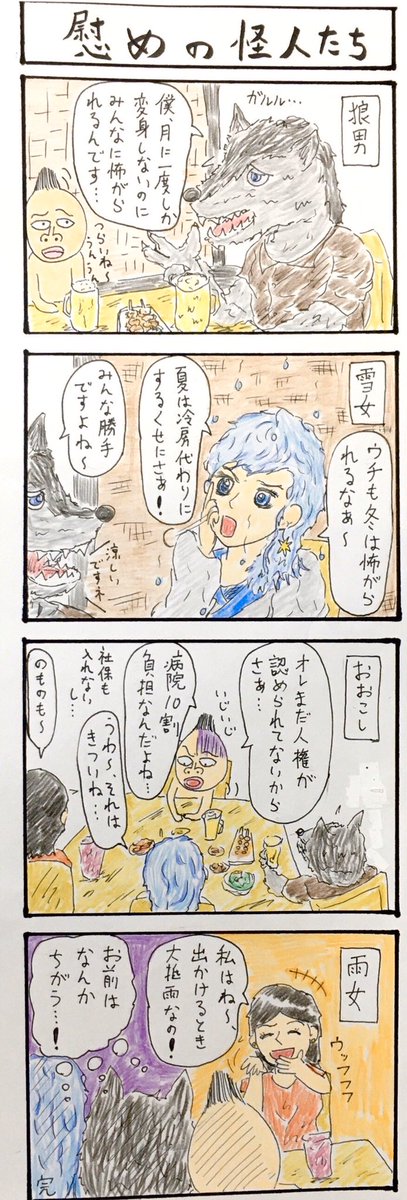 慰めの怪人たち
狼男
ガルル…
僕、月に一度しか
変身しないのに
みんなに怖がら
れるんです…
つらいね〜
うんうん
雪女
ウチも冬は怖がら
れるなぁ〜
夏は冷房代わりに
するくせにさぁ!
みんな勝手
ですよね〜
涼しい
ですネ
おおこし
オレまだ人権が
認められてないから
さぁ…
いじいじ
病院10割
負担なんだよね…
社保も
入れない
し…
うわ〜、それは
きついね…
のものも〜
雨女
私はね〜、
出かけるとき
大抵雨なの!
ウッフフフ
お前は
なんか
ちがう…!
完